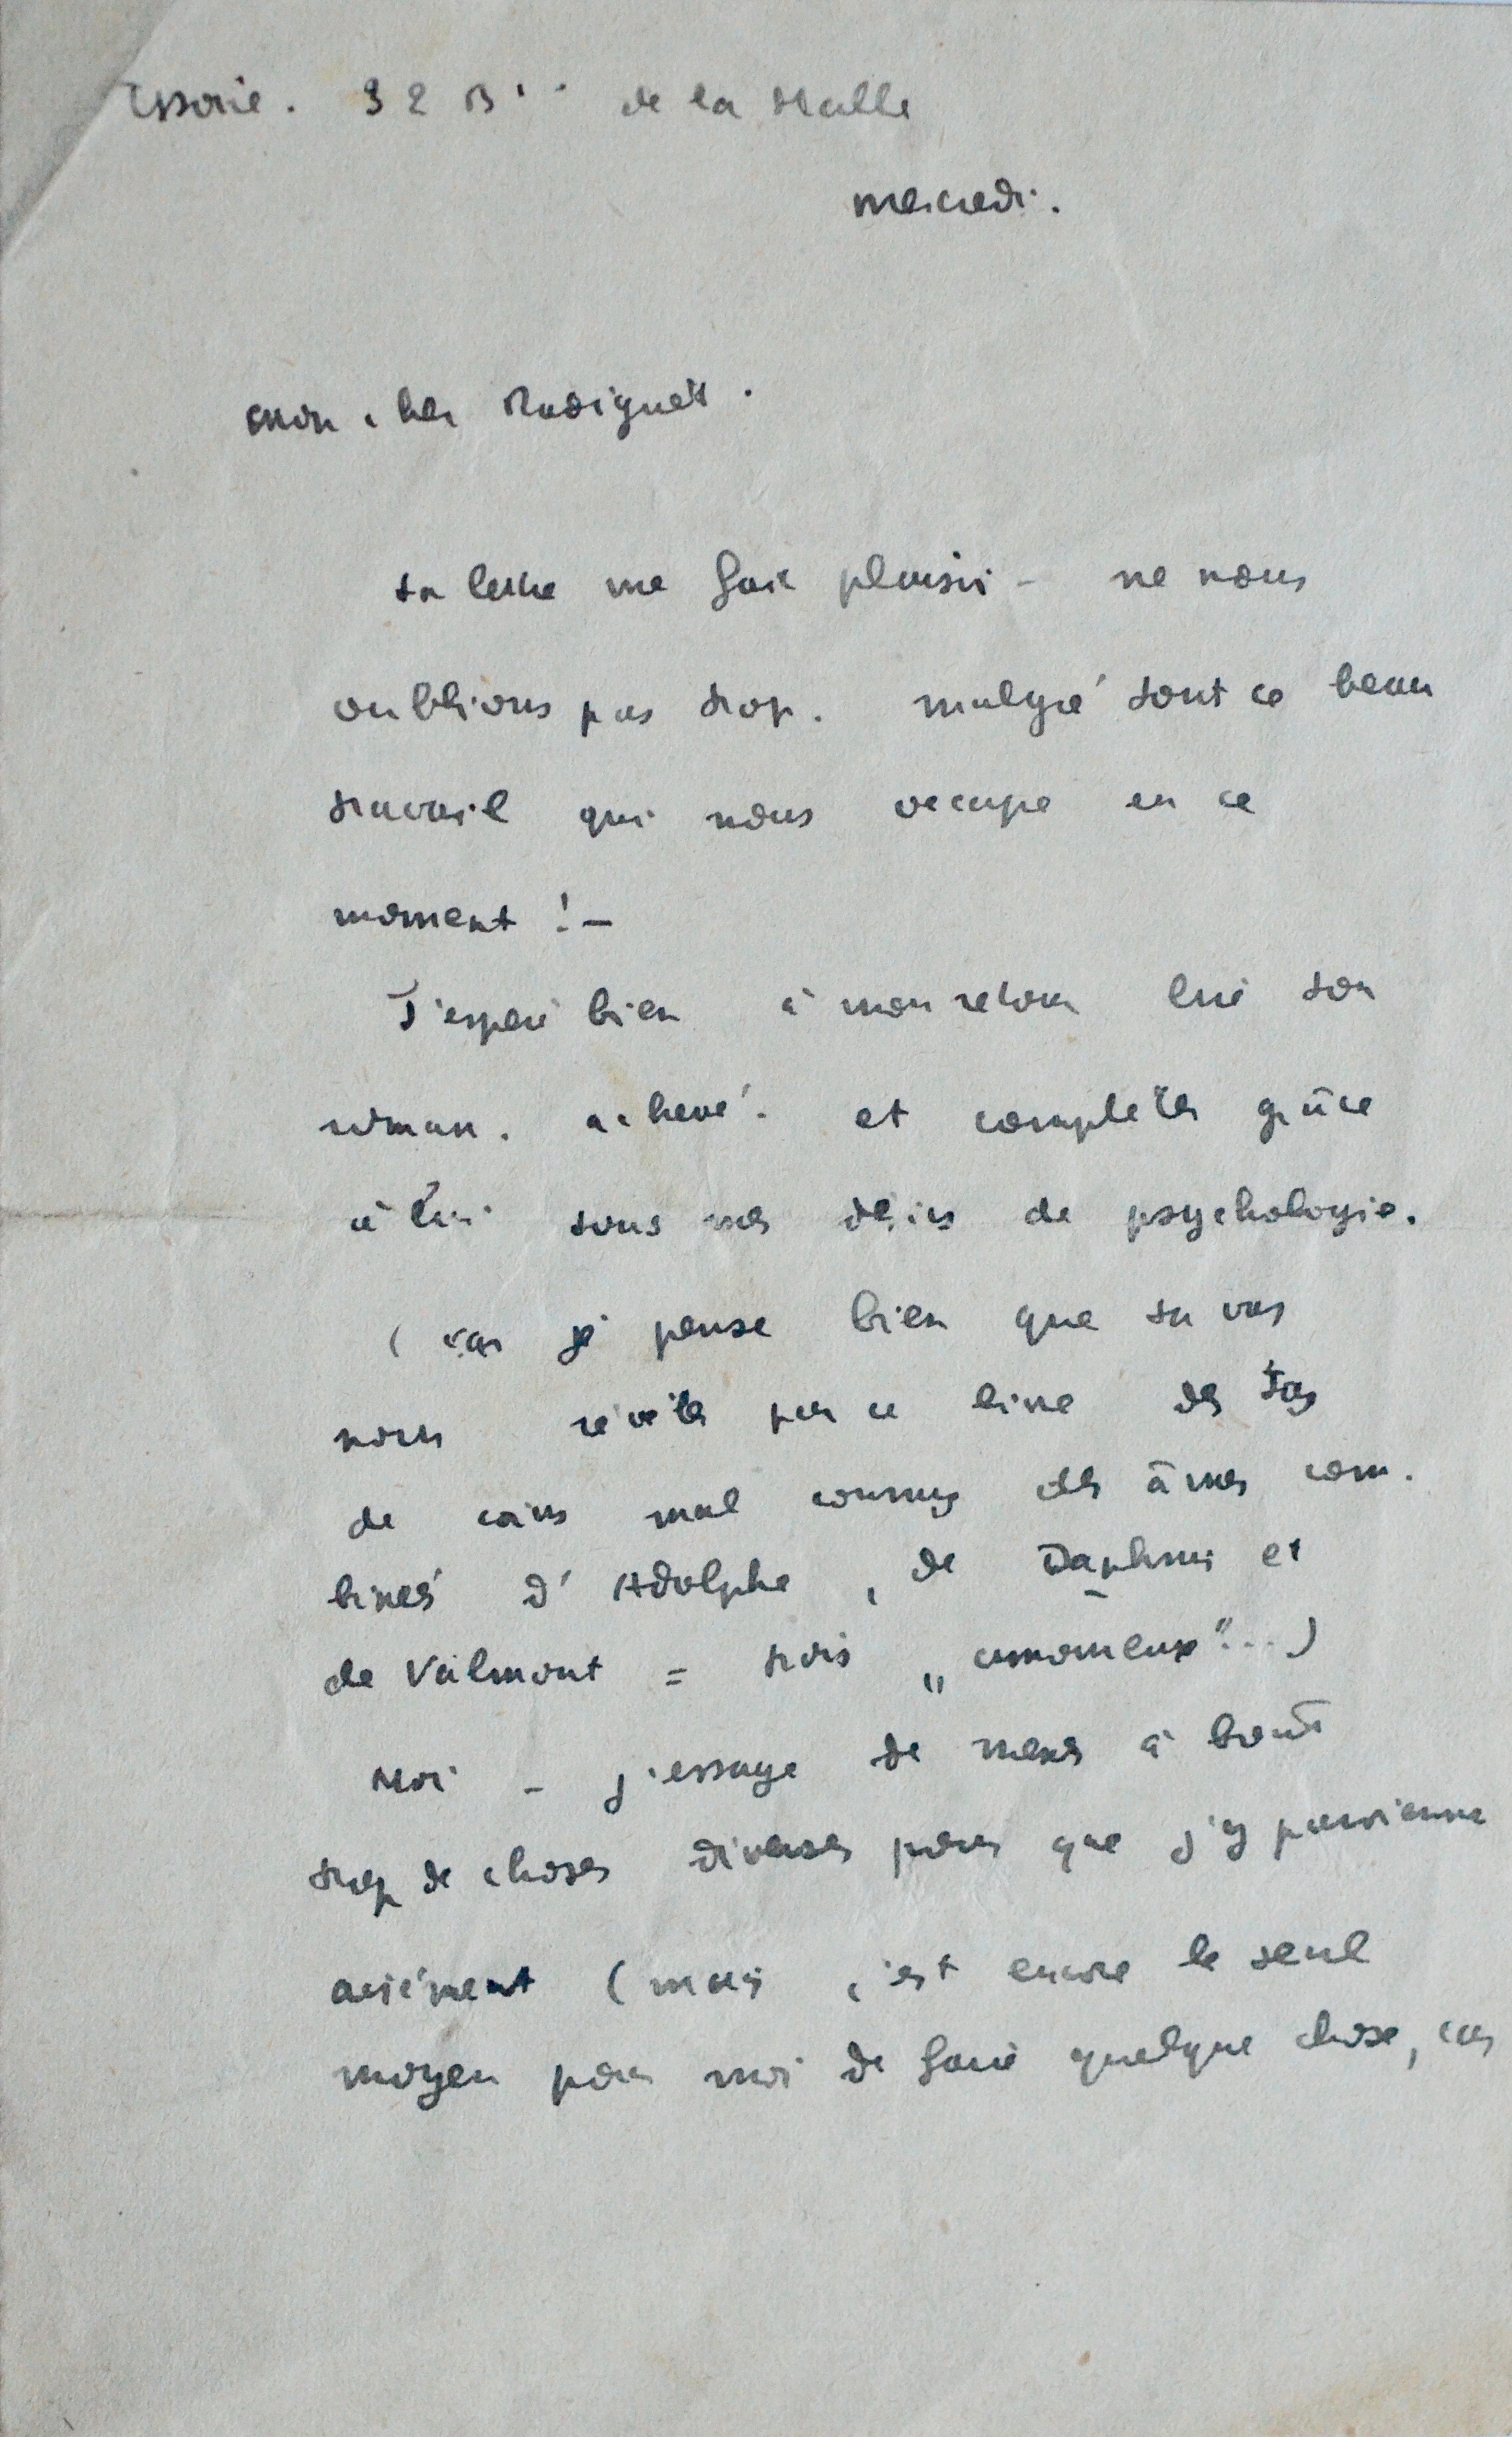 Issoire. 32 Bd de la Halle
mercredi.
Mon cher Radiguet.
ta lettre me fait plaisir – ne nous
oublions pas trop. malgré tout ce beau
travail qui nous occupe en ce
moment ! –
J'espère bien à mon retour lire ton
roman. achevé. et compléter grâce
à lui tous mes de psychologie.
(car je pense bien que tu vas
nous révéler par ce livre des tas
de coins mal connus des âmes com-
binées d'Adolphe, de Daphnis et
de Valmont = trois „amoureux"...)
Moi – j'essaye de mener à bout
trop de choses diverses pour que j'y parvienne
aisément (mais c'est encore le seul
moyen pour moi de faire quelque chose, car